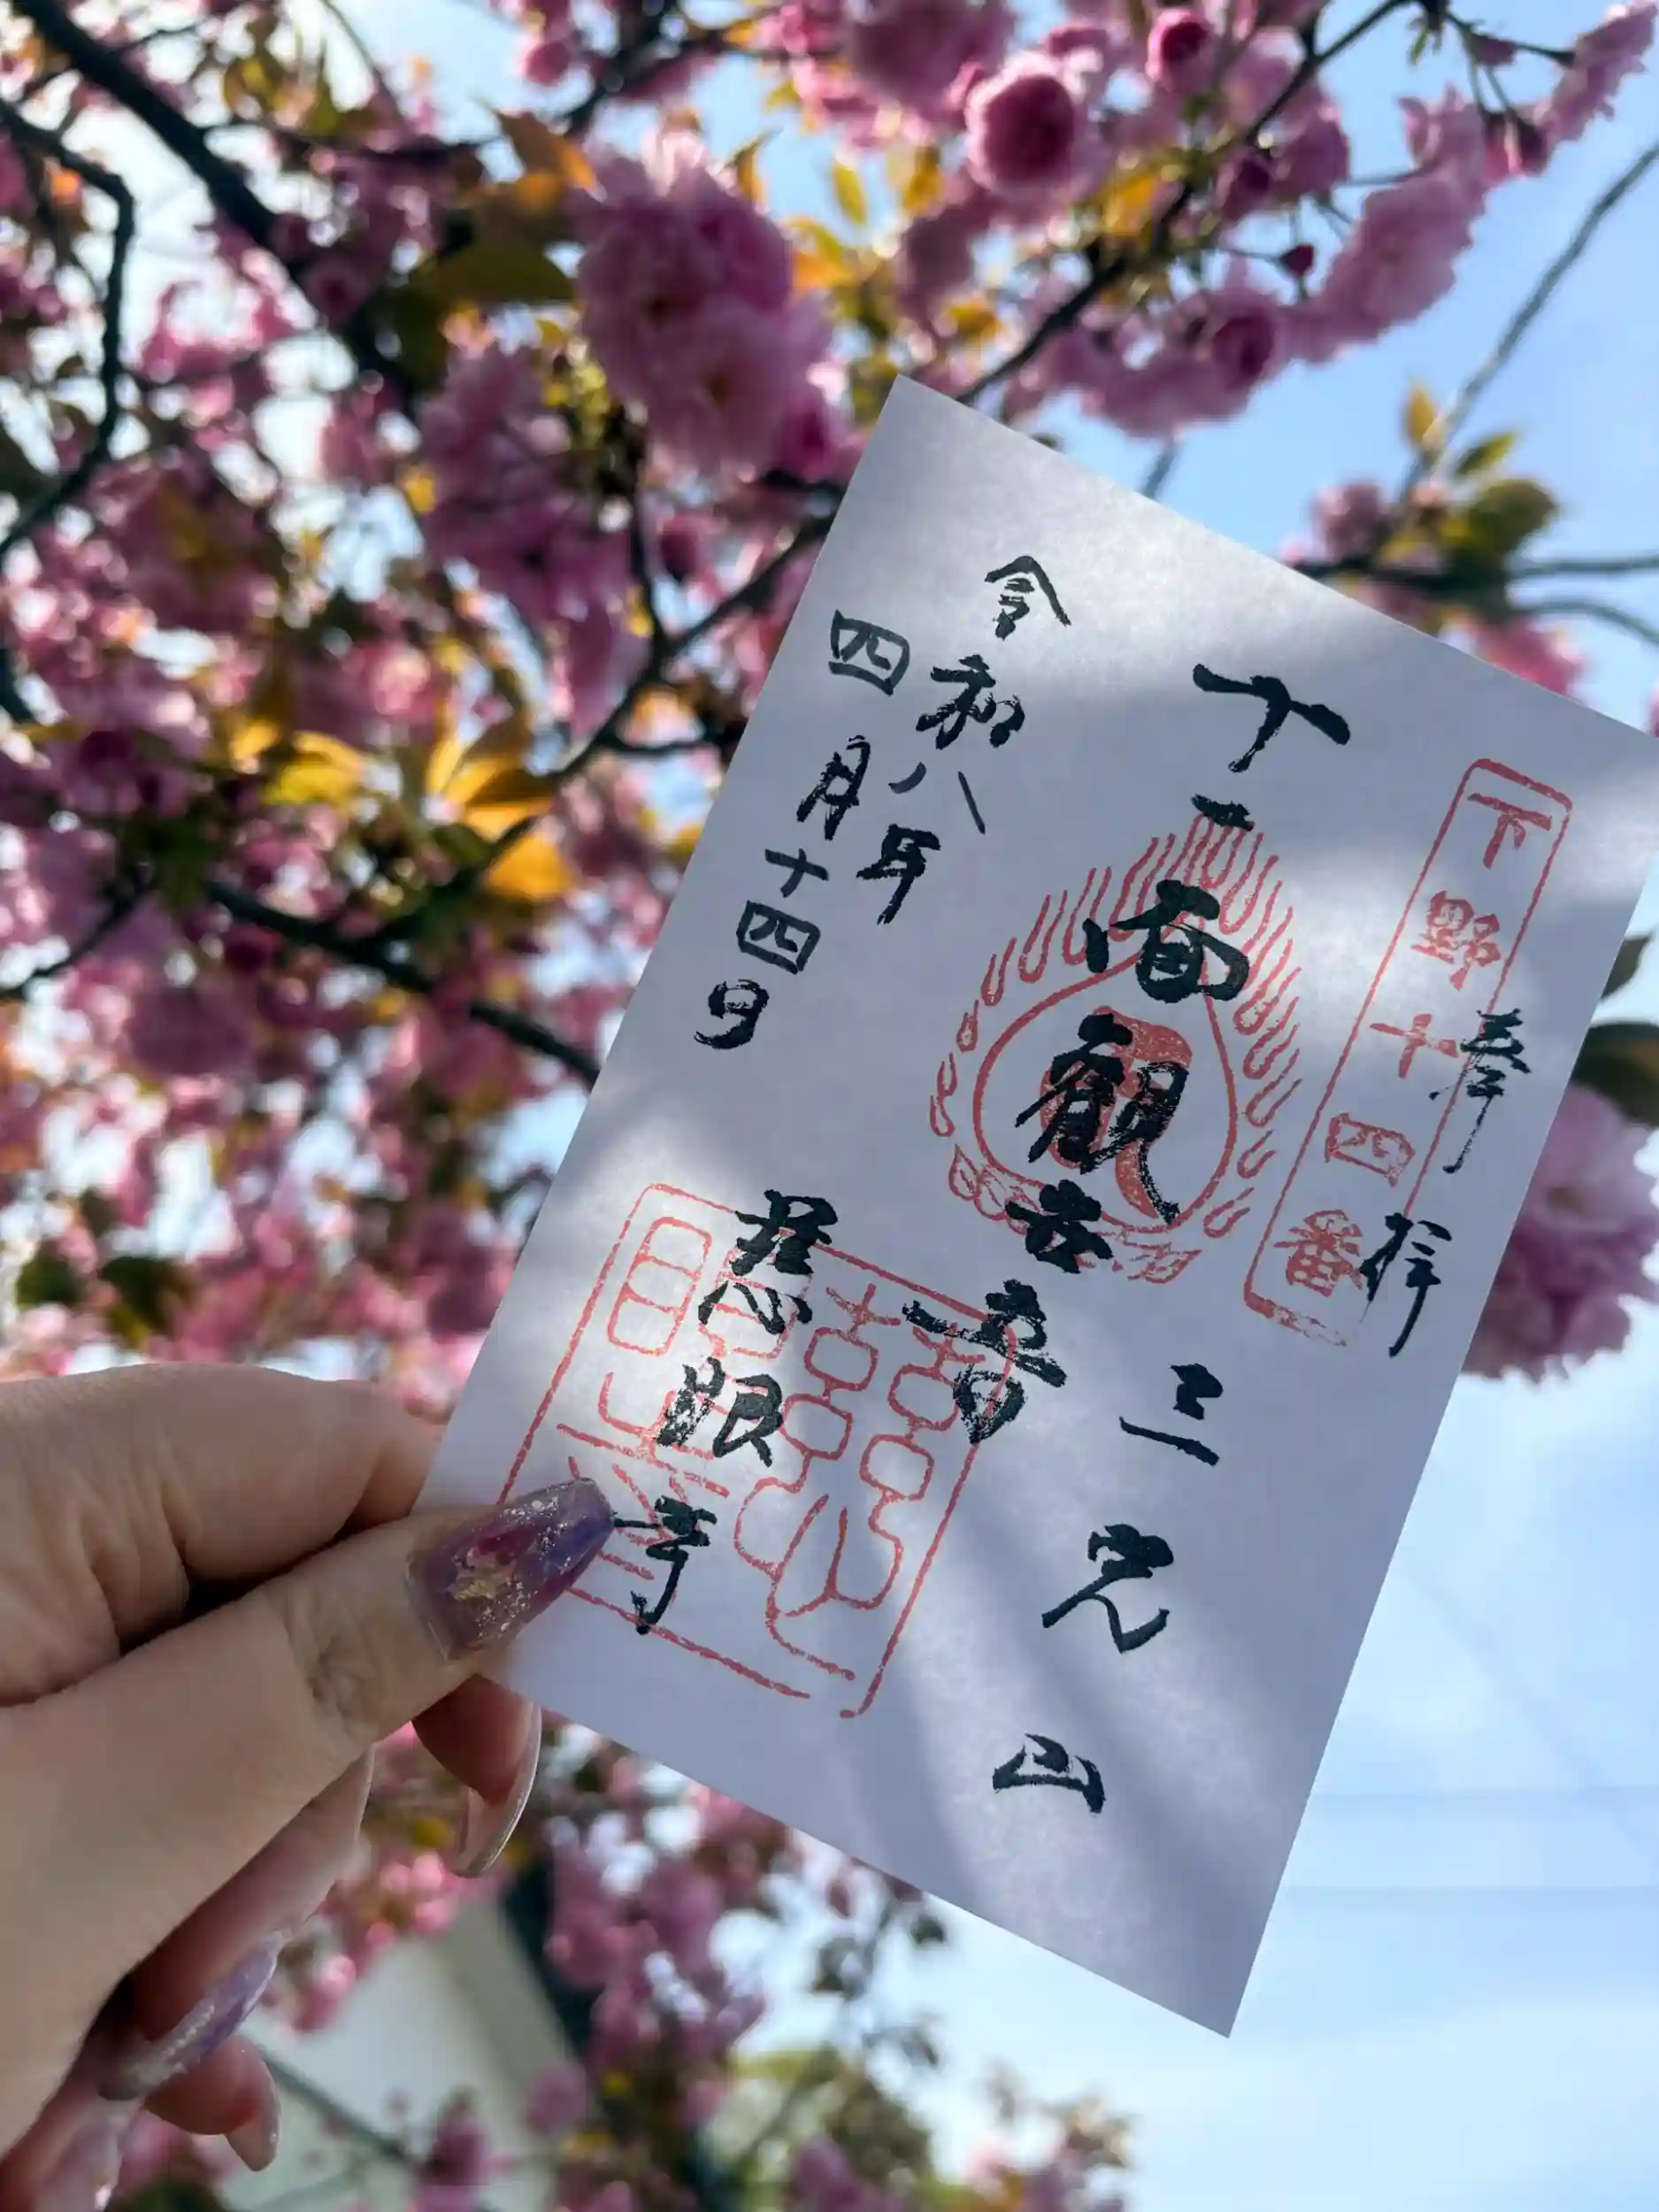 奉拝
下野十四番
十一面観世音
三光山
令和八年
四月十四日
慈眼寺